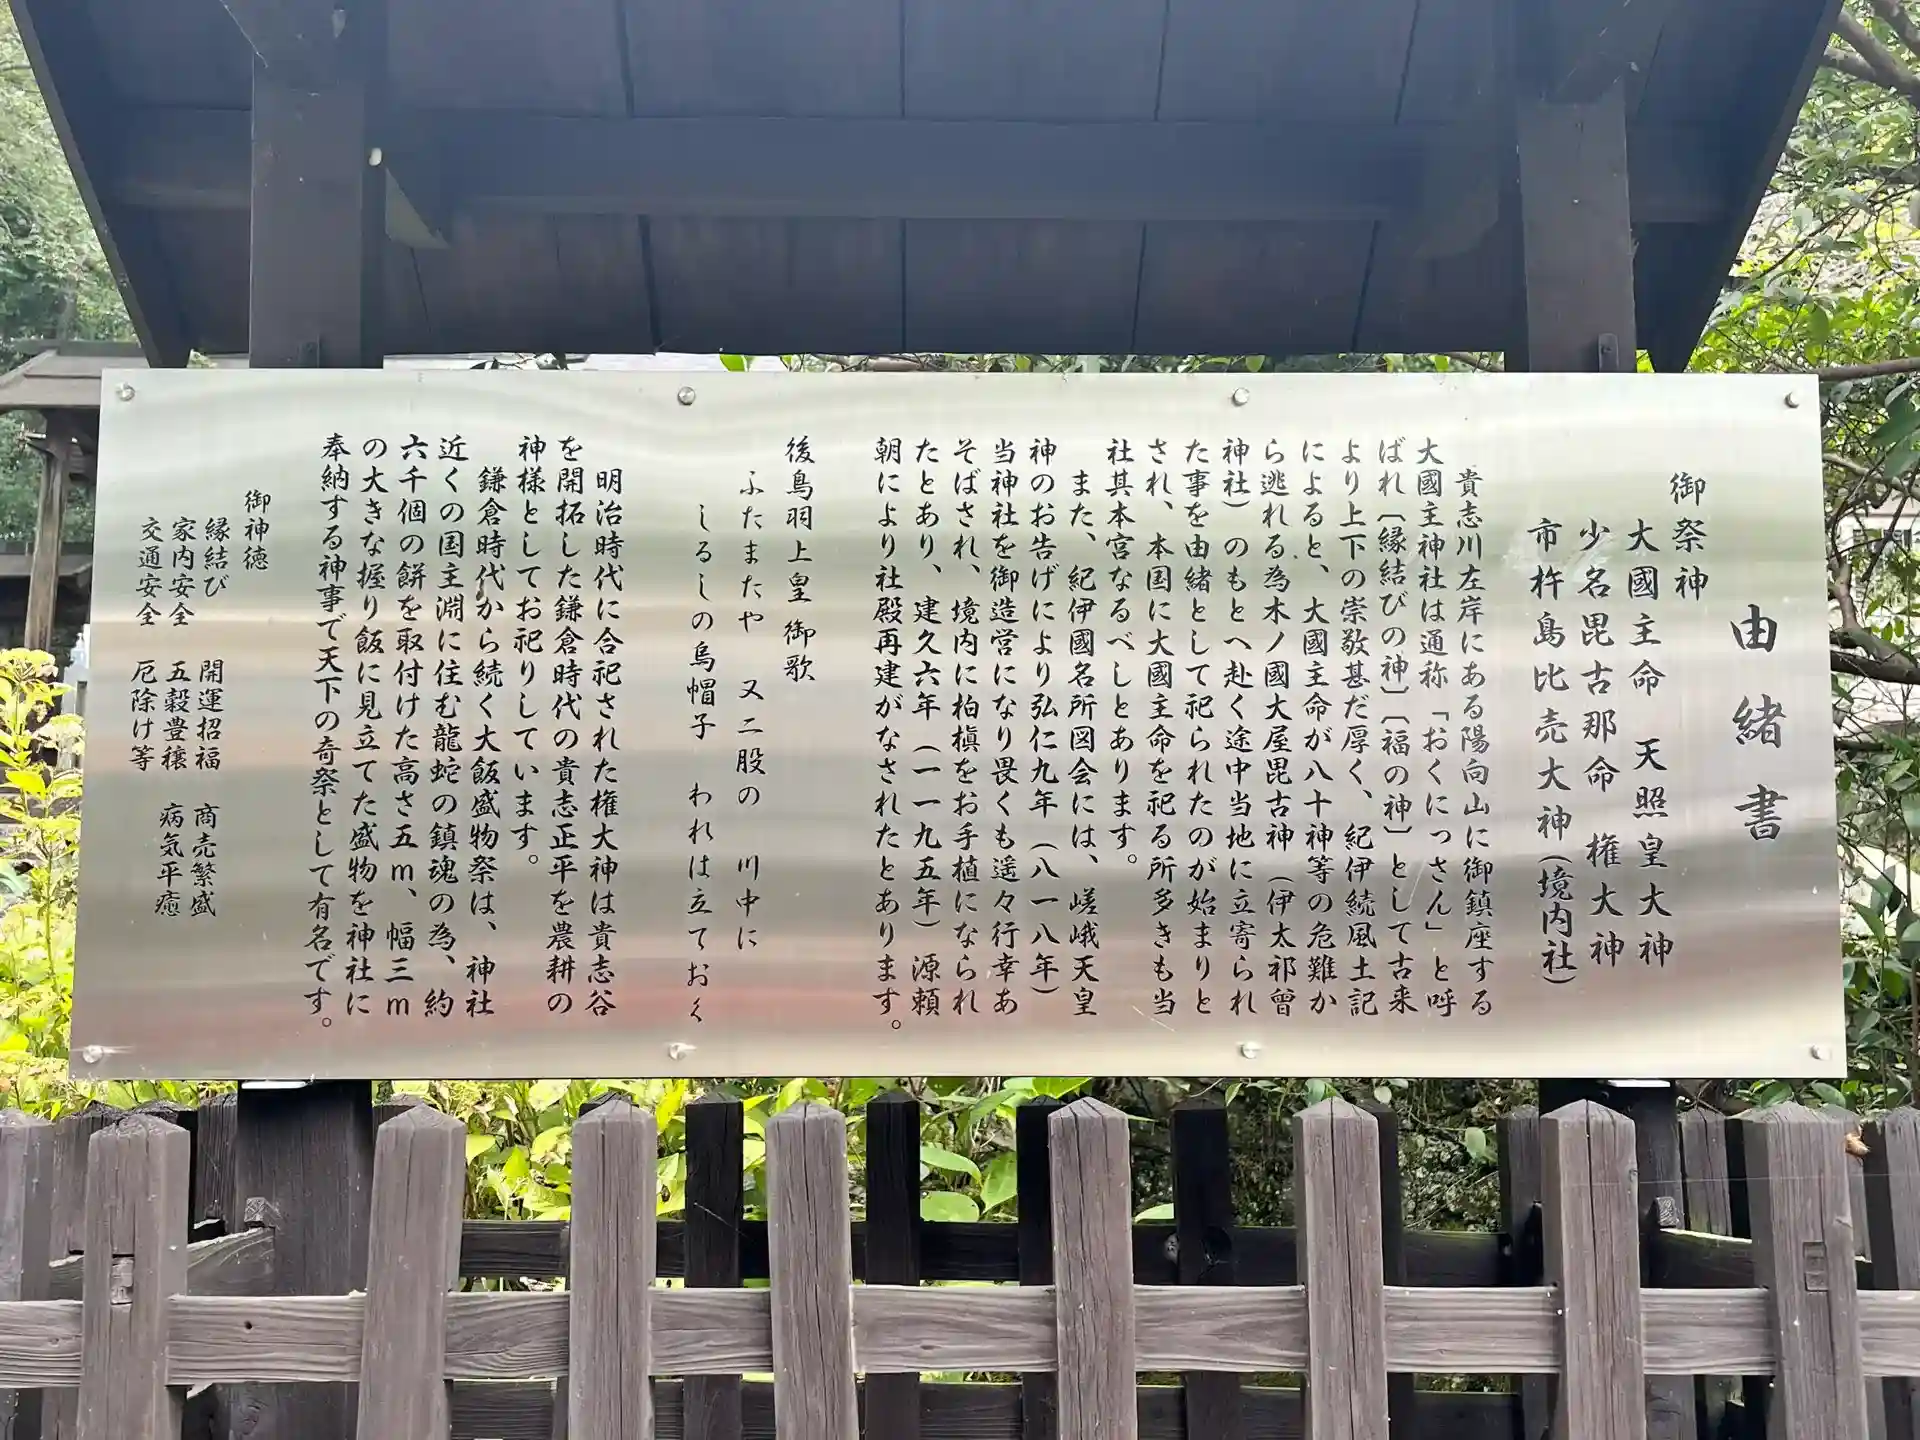 由緒書
御祭神
大國主命　天照皇大神
少名毘古那命　権大神
市杵島比売大神(境内社)
貴志川左岸にある陽向山に御鎮座する
大國主神社は通称「おくにっさん」と呼
ばれ〔縁結びの神〕〔福の神〕として古来
より上下の崇敬甚だ厚く、紀伊続風土記
によると、大國主命が八十神等の危難か
ら逃れる為木ノ國大屋毘古神（伊太祁曾
神社）のもとへ赴く途中当地に立寄られ
た事を由緒として祀られたのが始まりと
され、本国に大國主命を祀る所多きも当
社其本宮なるべしとあります。
また、紀伊國名所図会には、嵯峨天皇
神のお告げにより弘仁九年（八一八年）
当神社を御造営になり畏くも遥々行幸あ
そばされ、境内に柏槇をお手植になられ
たとあり、建久六年（一一九五年）源頼
朝により社殿再建がなされたとあります。
後鳥羽上皇御歌
ふたまたや　又二股の　川中に
しるしの烏帽子　われは立ておく
明治時代に合祀された権大神は貴志谷
を開拓した鎌倉時代の貴志正平を農耕の
神様としてお祀りしています。
鎌倉時代から続く大飯盛物祭は、神社
近くの国主淵に住む龍蛇の鎮魂の為、約
六千個の餅を取付けた高さ五m、幅三m
の大きな握り飯に見立てた盛物を神社に
奉納する神事で天下の奇祭として有名です。
御神徳
縁結び　開運招福　商売繁盛
家内安全　五穀豊穣　病気平癒
交通安全　厄除け等